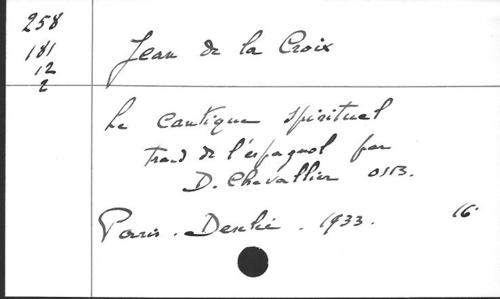 258
181
12
2
Jean de la Croix
Le cantique spirituel
Trad de l'espagnol par
D. Chevallier OSB.
Paris. Desclée. 1933. 16